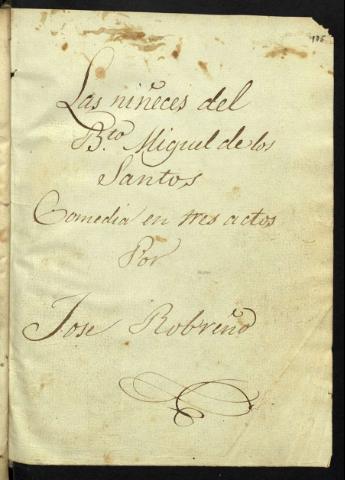 175
Las niñeces del
B.to Miguel de los
Santos
Comedia en tres actos
Por
Jose Robreño